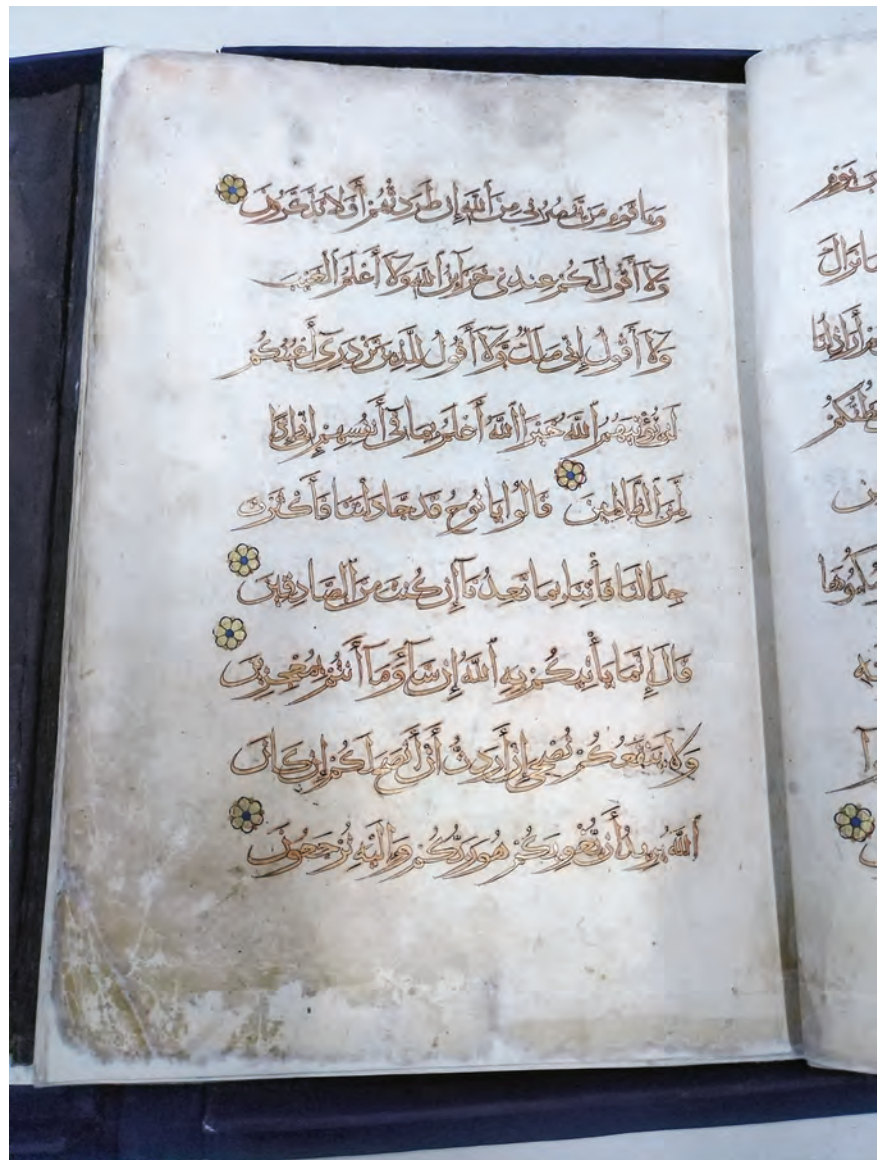 وَيَاقَوْمِ مَنْ يَنْصُرُنِي مِنَ ٱللَّهِ إِنْ طَرَدْتُهُمْ أَفَلَا تَذَكَّرُونَ
وَلَآ أَقُولُ لَكُمْ عِنْدِي خَزَآئِنُ ٱللَّهِ وَلَآ أَعْلَمُ ٱلْغَيْبَ
وَلَآ أَقُولُ إِنِّي مَلَكٌ وَلَآ أَقُولُ لِلَّذِينَ تَزْدَرِىٓ أَعْيُنُكُمْ
لَنْ يُؤْتِيَهُمُ ٱللَّهُ خَيْرًا ٱللَّهُ أَعْلَمُ بِمَا فِىٓ أَنْفُسِهِمْ إِنِّىٓ إِذًا
لَمِنَ ٱلظَّالِمِينَ قَالُوا يَا نُوحُ قَدْ جَادَلْتَنَا فَأَكْثَرْتَ
جِدَالَنَا فَأْتِنَا بِمَا تَعِدُنَآ إِنْ كُنْتَ مِنَ ٱلصَّادِقِينَ
قَالَ إِنَّمَا يَأْتِيكُمْ بِهِ ٱللَّهُ إِنْ شَآءَ وَمَآ أَنْتُمْ بِمُعْجِزِينَ
وَلَا يَنْفَعُكُمْ نُصْحِىٓ إِنْ أَرَدْتُ أَنْ أَنْصَحَ لَكُمْ إِنْ كَانَ
ٱللَّهُ يُرِيدُ أَنْ يُغْوِيَكُمْ هُوَ رَبُّكُمْ وَإِلَيْهِ تُرْجَعُونَ